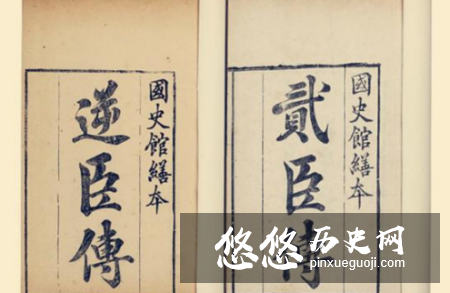 國史館繕本
逆臣傳
國史館繕本
貳臣傳
悠悠历史网
pinxueguoji.com